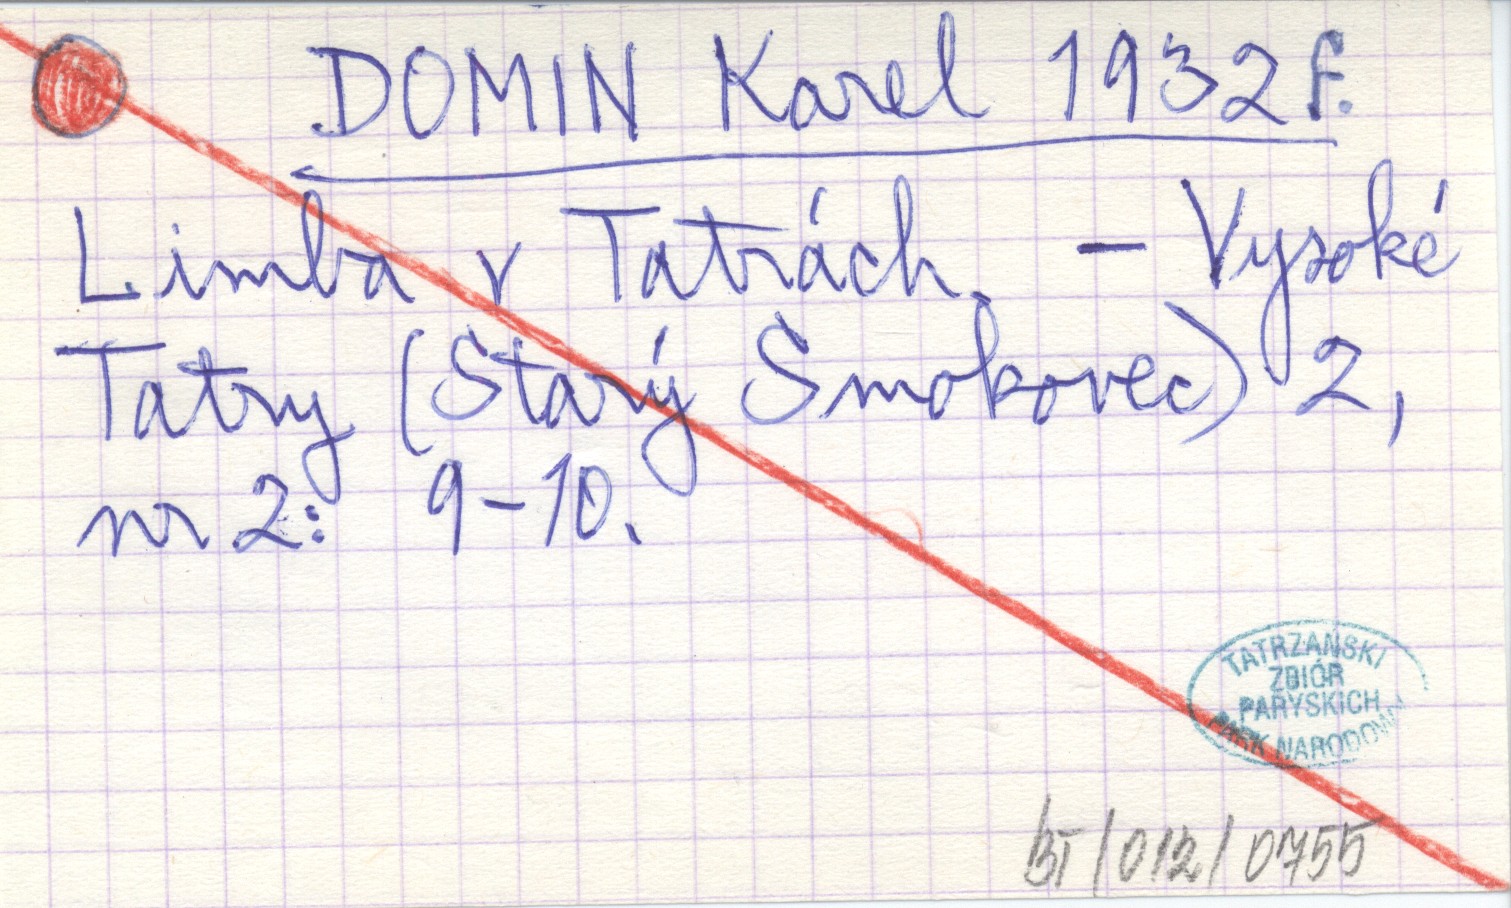 DOMIN Karel 1932 f.
Limba v Tatrách. – Vysoké
Tatry (Starý Smokovec) 2,
nr 2: 9–10.
TATRZAŃSKI
ZBIÓR
PARYSKICH
PARK NARODOWY
BT/012/0755